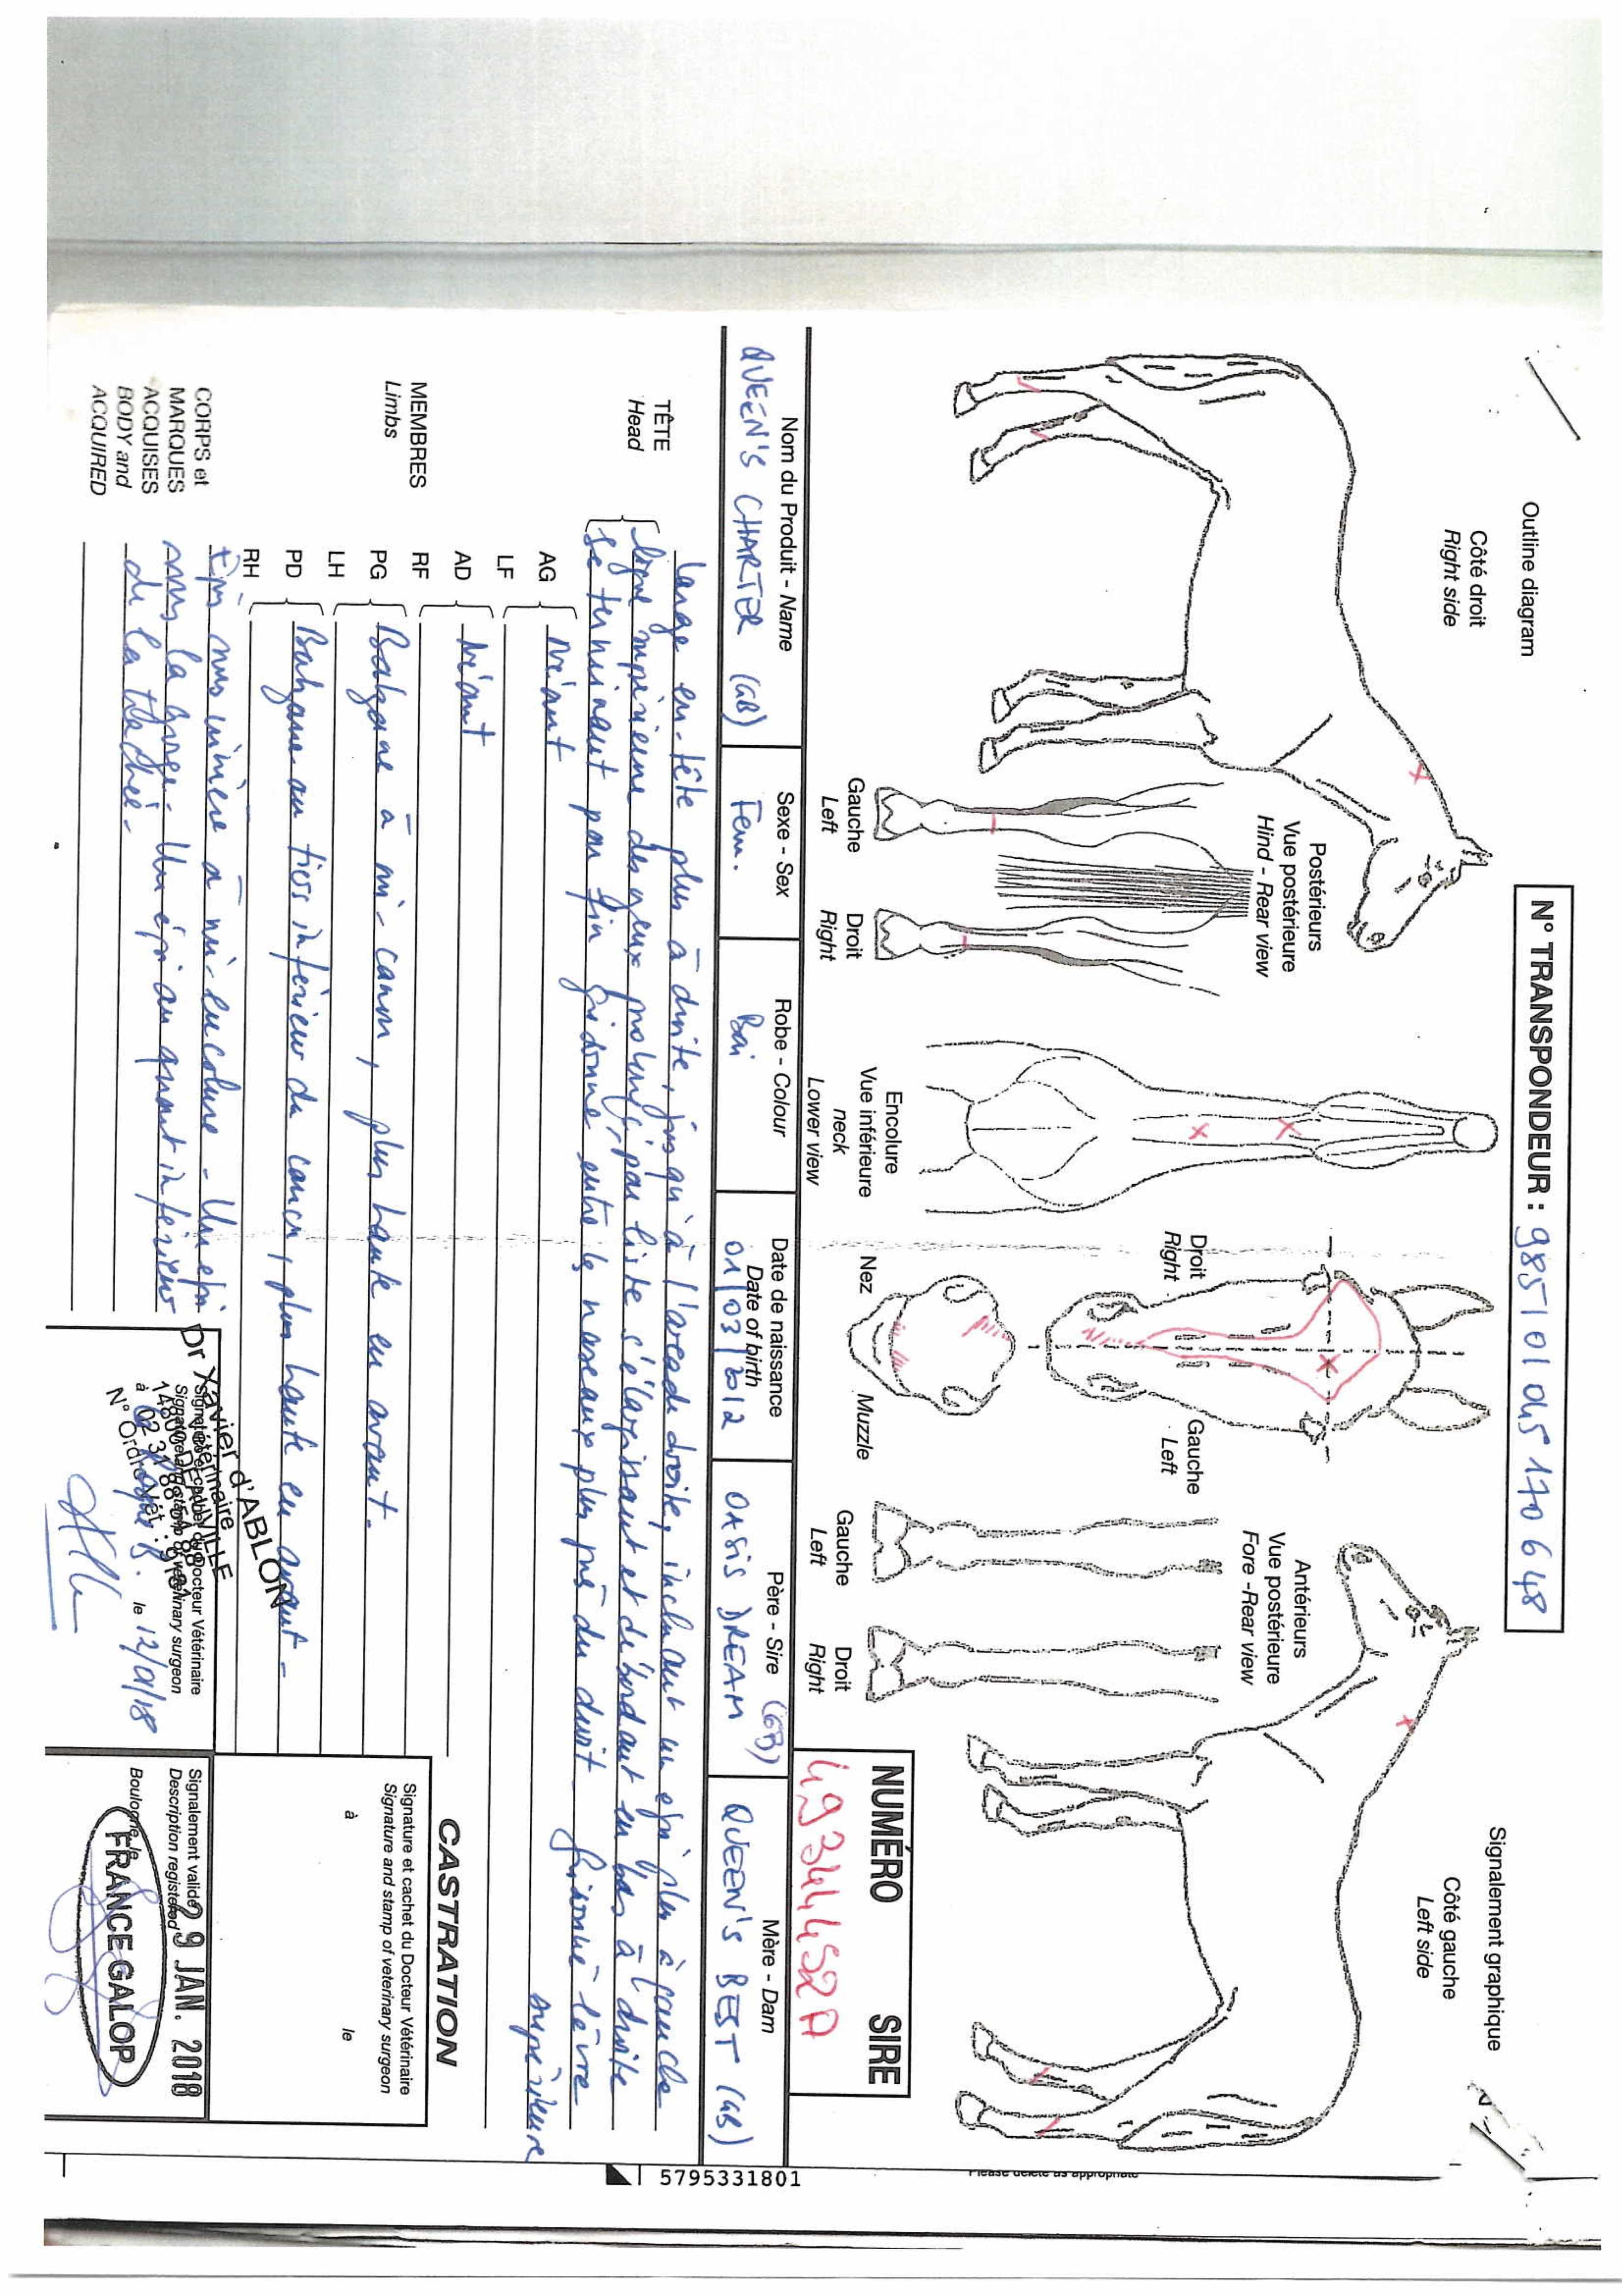 Outline diagram
Côté droit
Right side
N° TRANSPONDEUR : 985101045170648
Signalement graphique
Côté gauche
Left side
Postérieurs
Vue postérieure
Hind - Rear view
Gauche
Left
Droit
Right
Encolure
Vue inférieure
neck
Lower view
Droit
Right
Gauche
Left
Nez
Muzzle
Antérieurs
Vue postérieure
Fore - Rear view
Gauche
Left
Droit
Right
NUMÉRO SIRE
Nom du Produit - Name
QUEEN'S CHARTER (GB)
Sexe - Sex
Fem.
Robe - Colour
Bai
Date de naissance
Date of birth
01/03/2012
Père - Sire
OASIS DREAM (GB)
Mère - Dam
QUEEN'S BEST (GB)
TÊTE
Head
large en-tête plus à droite, jusqu'à l'arcade droite, incluant un épi plus à gauche
ligne supérieure des yeux prolongé par liste s'élargissant et débordant en bas à droite
se terminant par fin grisonné entre les naseaux plus près du droit. grisonné lèvre
supérieure
MEMBRES
Limbs
AG Néant
LF
AD Néant
RF
PG Balzane à mi-canon, plus haute en avant.
LH
PD Balzane au tiers inférieur du canon, plus haute en avant-
RH
CORPS et
MARQUES
ACQUISES
BODY and
ACQUIRED
Epis sous crinière à mi-encolure - Un épi
sous la gorge - Un épi au quart inférieur
de la trachée -
CASTRATION
Signature et cachet du Docteur Vétérinaire
Signature and stamp of veterinary surgeon
à le
Dr Xavier d'ABLON
Vétérinaire
14800 DEAUVILLE
Signature et cachet du Docteur Vétérinaire
Signature and stamp of veterinary surgeon
à le 12/01/18
Signalement validé
Description registered
29 JAN. 2018
Boulogne, le
FRANCE GALOP
5795331801
Please delete as appropriate